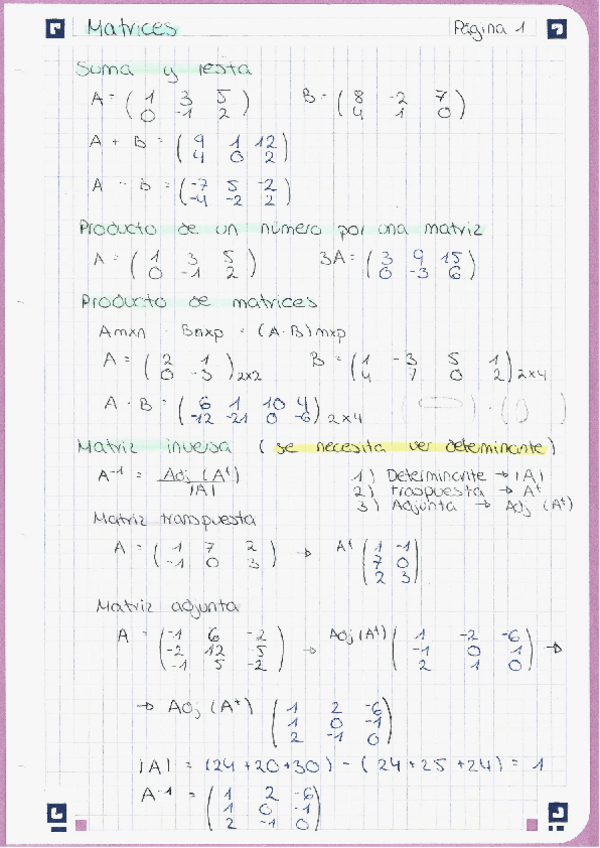 Matrices Página 1
Suma y resta
A = ( 1 3 5 ) B = ( 8 -2 7 )
0 -1 2 4 1 0
A + B = ( 9 1 12 )
4 0 2
A - B = ( -7 5 -2 )
-4 -2 2
Producto de un número por una matriz
A = ( 1 3 5 ) 3A = ( 3 9 15 )
0 -1 2 0 -3 6
Producto de matrices
Amxn · Bnxp = (A·B)mxp
A = ( 2 1 ) B = ( 1 -3 5 1 )
0 -3 2x2 4 7 0 2 2x4
A · B = ( 6 1 10 4 )
-12 -21 0 -6 2x4
Matriz inversa (se necesita ver determinante)
A-1 = Adj (At) 1) Determinante → |A|
|A| 2) traspuesta → At
3) Adjunta → Adj (At)
Matriz transpuesta
A = ( 1 7 2 ) → At ( 1 -1 )
-1 0 3 7 0
2 3
Matriz adjunta
A = ( -1 6 -2 ) → Adj (At) ( 1 -2 -6 ) →
-2 12 -5 -1 0 1
-1 5 -2 2 1 0
→ Adj (At) ( 1 2 -6 )
1 0 -1
2 -1 0
|A| = (24+20+30) - (24+25+24) = 1
A-1 = ( 1 2 -6 )
1 0 -1
2 -1 0